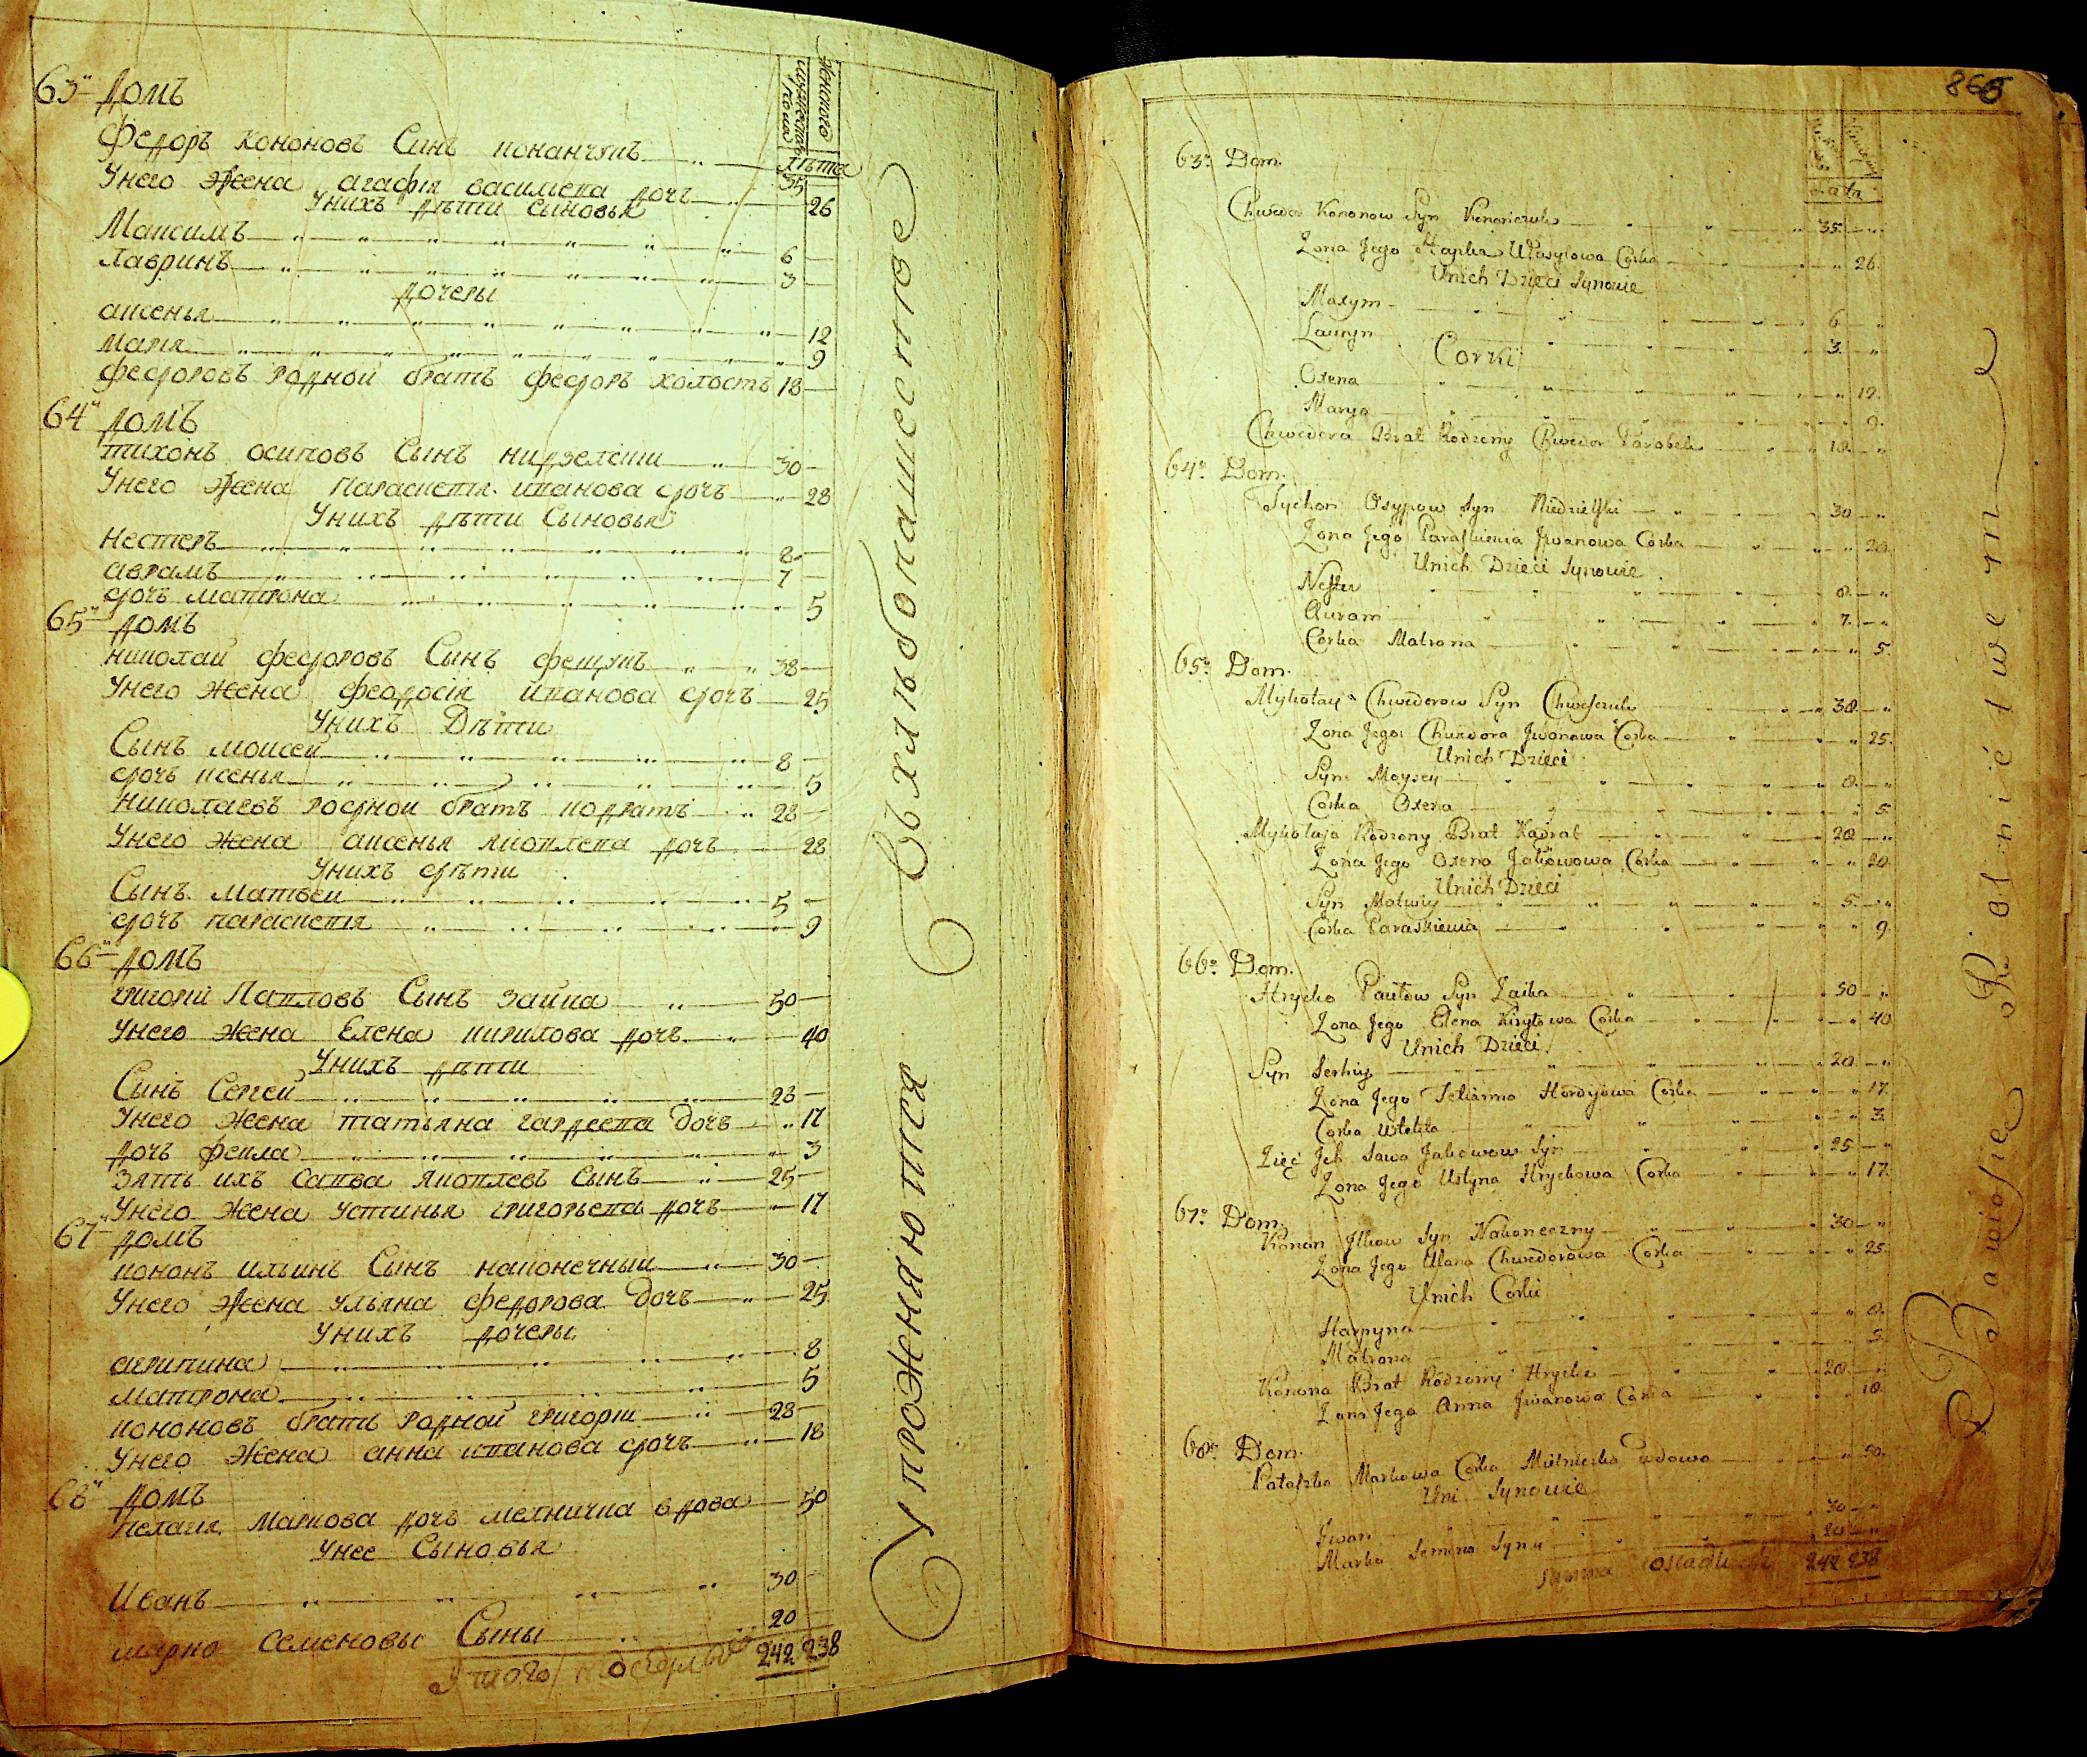 Женского
мужеского пола
лѣта
63й домъ
Федоръ кононовъ Сынъ конанчукъ 35
Унего Жена агафія василева дочь 26
Унихъ дѣти Сыновья
Максимъ 6
лавринъ 3
дочеры
аксенья 12
марія 9
федоровъ родной братъ федоръ холостъ 18
64й домъ
тихонъ осиповъ Сынъ нидзелскии 30
Унего Жена Параскевія иванова дочь 28
Унихъ дѣти Сыновья
нестеръ 8
аврамъ 7
дочь матрона 5
65й домъ
николай федоровъ Сынъ фещукъ 38
Унего жена феодосія иванова дочь 25
Унихъ Дѣти
Сынъ моисей 8
дочь ксенья 5
николаевъ родной братъ кодратъ 28
Унего жена аксенья яковлева дочь 28
Унихъ дѣти
Сынъ матвей 5
дочь параскевія 9
66й домъ
григорій Павловъ Сынъ заика 50
Унего жена Елена кирилова дочь 40
Унихъ дѣти
Сынъ Сергей 28
Унего жена татьяна гардеева дочь 17
дочь фекла 3
зять ихъ Савва яковлевъ Сынъ 25
Унего жена устинья григорьева дочь 17
67й домъ
кононъ ильинъ Сынъ наконечный 30
Унего Жена ульяна федорова дочь 25
Унихъ дочеры
агрипина 8
матрона 5
кононовъ братъ родной григорій 28
Унего Жена анна иванова дочь 18
68й домъ
пелагія маркова дочь мелничка вдова 50
Унее Сыновья
Иванъ 30
марко Семеновы Сыны 20
Итого 242 238
Упрожняются Въ хлѣбопашестве
866
Lata
63o Dom.
Chwedor Kononow Syn Kononczuk 35
Zona Jego Hapka Wasylowa Corka 26.
Unich Dzieci Synowie
Maxym 6
Lauryn 3.
Corki
Oxena 12.
Marya 9.
Chwedora Brat Rodzony Chwedor Parobek 18.
64o Dom.
Tychon Osypow Syn Niedzielski 30
Zona Jego Paraskiewia Jwanowa Corka 28.
Unich Dzieci Synowie.
Nester 8.
Auram 7.
Corka Matrona 5.
65o Dom.
Mykołay Chwedorow Syn Chweszczuk 38.
Zona Jego Chwedora Jwanowa Corka 25.
Unich Dzieci
Syn Moysey 8.
Corka Oxena 5.
Mykołaja Rodzony Brat Kadrat 28
Zona Jego Oxena Jakowowa Corka 28.
Unich Dzieci
Syn Matwiy 5.
Corka Paraskiewia 9.
66o Dom.
Hrycko Pawłow Syn Zaika 50
Zona Jego Elena Kiryłowa Corka 40
Unich Dzieci.
Syn Serhiy 28.
Zona Jego Tetianna Hordyiowa Corka 17.
Corka 3.
Zięć Jch Sawa Jakowow Syn 25
Zona Jego Ustyna Hryckowa Corka 17.
67o Dom.
Konon Jlkow Syn Nakoneczny 30
Zona Jego Ulana Chwedorowa Corka 25.
Unich Corki
Harpyna 8.
Matrona 5.
Konona Brat Rodzony Hrycko 28
Zona Jego Anna Jwanowa Corka 18.
68o Dom.
Pałaszka Markowa Corka Mielniczka wdowa 50.
Uni Synowie
Jwan 30
Marko Semena Syny 20
Summa 242 238
Bawiąsie Rolnictwem